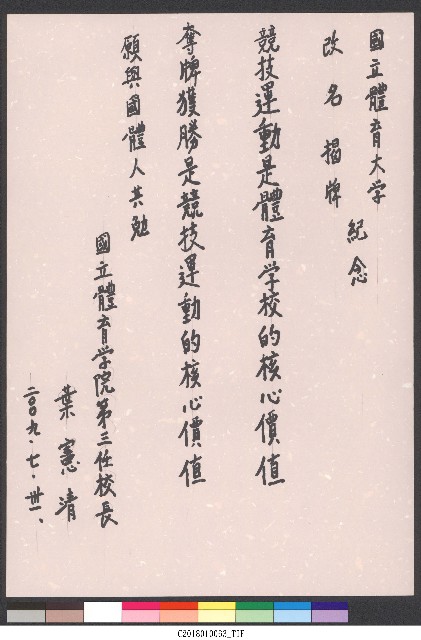 國立體育大学
改名揭牌 紀念
競技運動是體育学校的核心價值
奪牌獲勝是競技運動的核心價值
願與國體人共勉
國立體育学院第三任校長
葉憲清
二〇〇九.七.卅一、
C2018010063_TIF